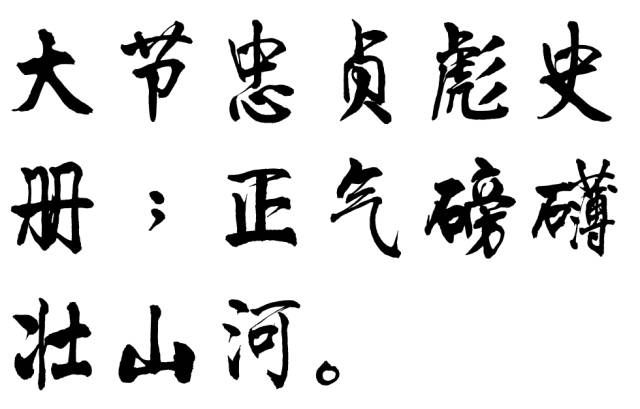 大节忠贞彪史
册；正气磅礴
壮山河。